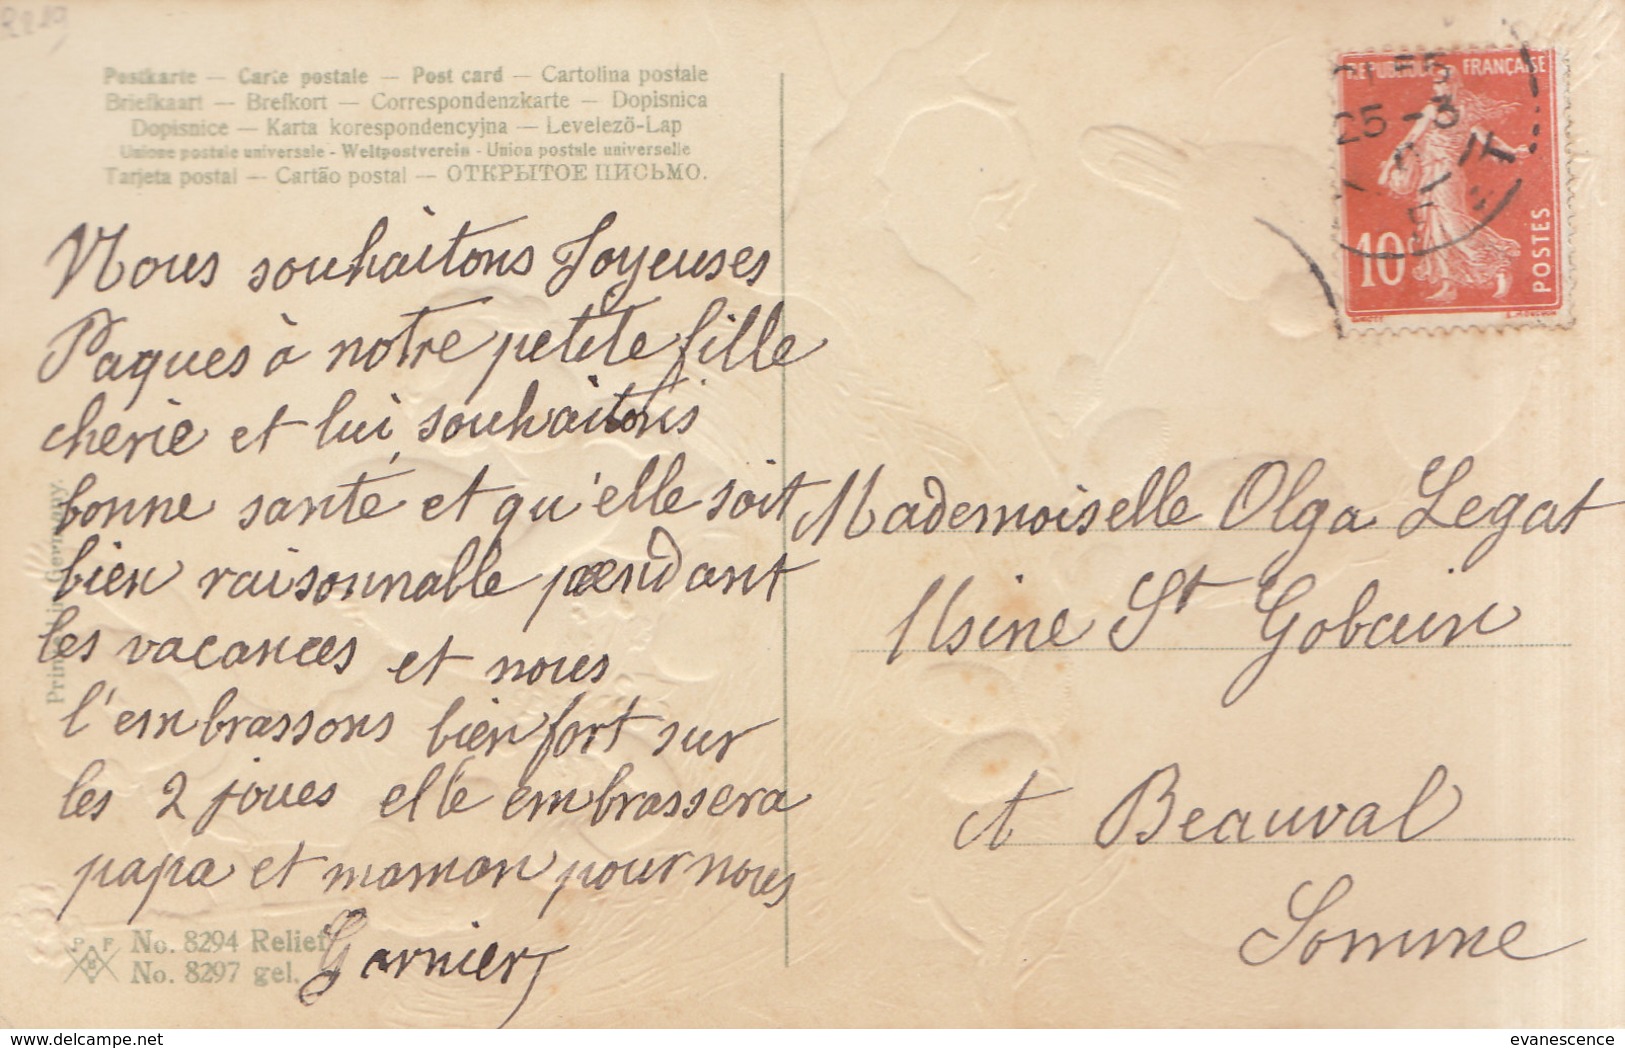 Postkarte — Carte postale — Post card — Cartolina postale
Briefkaart — Brefkort — Correspondenzkarte — Dopisnica
Dopisnice — Karta korespondencyjna — Levelezō-Lap
Unione postale universale - Weltpostverein - Union postale universelle
Tarjeta postal — Cartão postal — ОТКРЫТОЕ ПИСЬМО.
Nous souhaitons Joyeuses
Paques à notre petite fille
cherie et lui souhaitons
bonne santé et qu'elle soit
bien raisonnable pendant
les vacances et nous
l'embrassons bien fort sur
les 2 joues elle embrassera
papa et maman pour nous
Garnier
Printed in Germany.
P F B
No. 8294 Relief
No. 8297 gel.
REPUBLIQUE FRANÇAISE
10c
POSTES
25 - 3
Mademoiselle Olga Legat
Usine St Gobain
A Beauval
Somme
evanescence